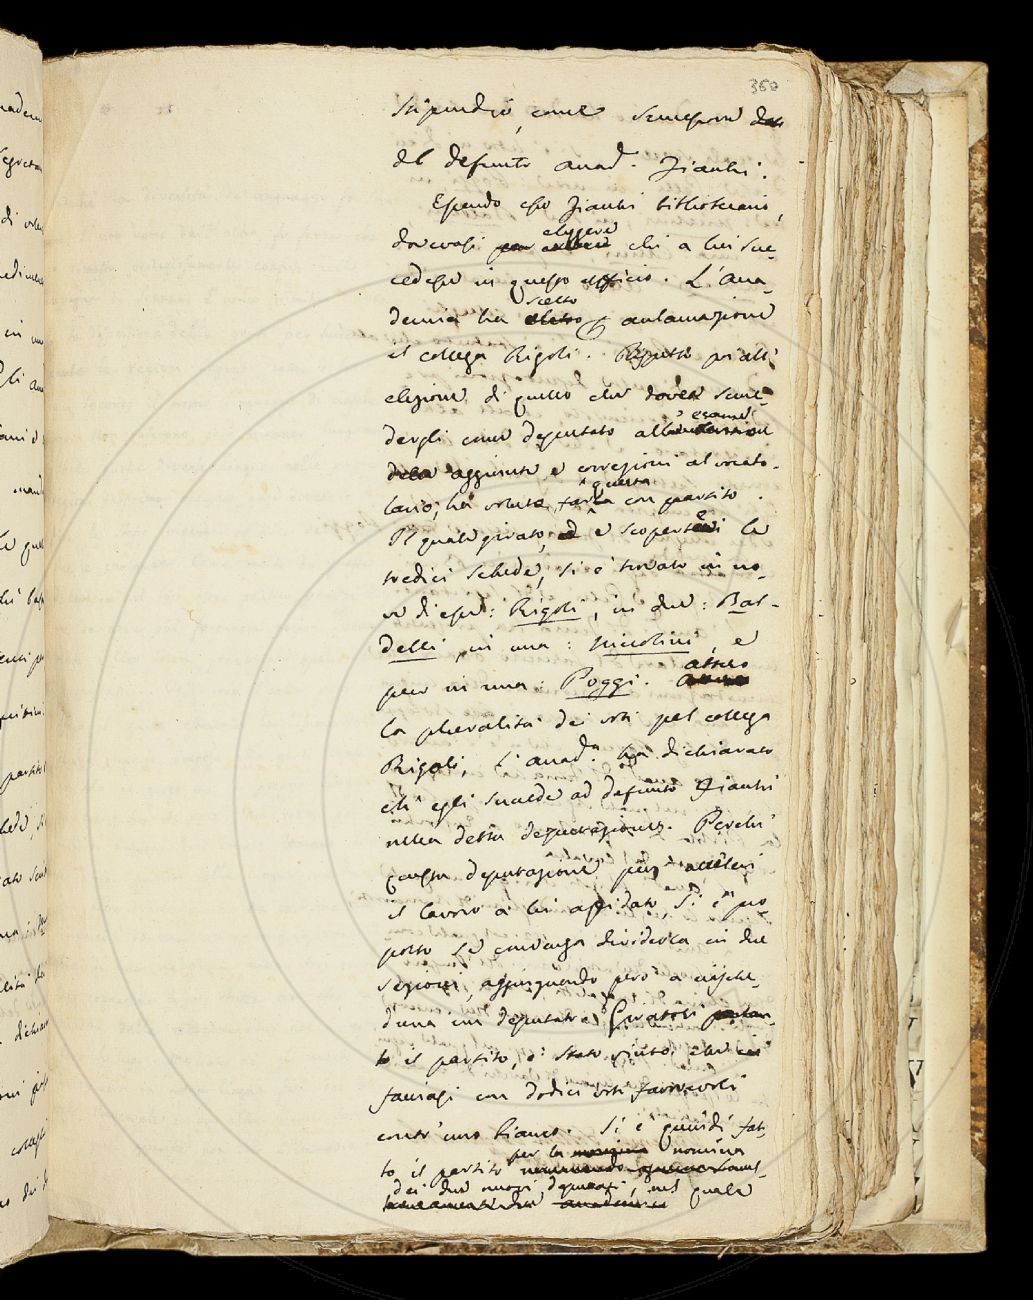 360
stipendio, come successore
del defunto accad. Fiacchi.
Essendo esso Fiacchi bibliotecario,
dovevasi eleggere chi a lui suc-
cedesse in questo ufficio. L'Acca-
demia ha scelto per acclamazione
il collega Rigoli. Rispetto poi all'
elezione di quello che dovea succe-
dergli come deputato all'esame
aggiunte e correzioni al vocabo-
lario, ha voluto farla con partito.
Il quale girato, e scoperte le
tredici schede, si è trovato in no-
ve di esse: Rigoli, in due: Bal-
delli, in una: Niccolini, e
pur in una: Poggi. Atteso
la pluralità dei voti pel collega
Rigoli, l'Accad.a ha dichiarato
ch'egli succede al defunto Fiacchi
nella detta deputazione. Perchè
questa deputazione più acceleri
il lavoro a lei affidato, si è pro-
posto se convenga dividerla in due
sezioni, aggiugnendo però a ciasche-
duna un deputato. Giratosi
il partito, è stato vinto, che ciò
facciasi con dodici voti favorevoli
contr'uno bianco. Si è quindi fat-
to il partito per la nomina
dei due nuovi deputati, nel quale